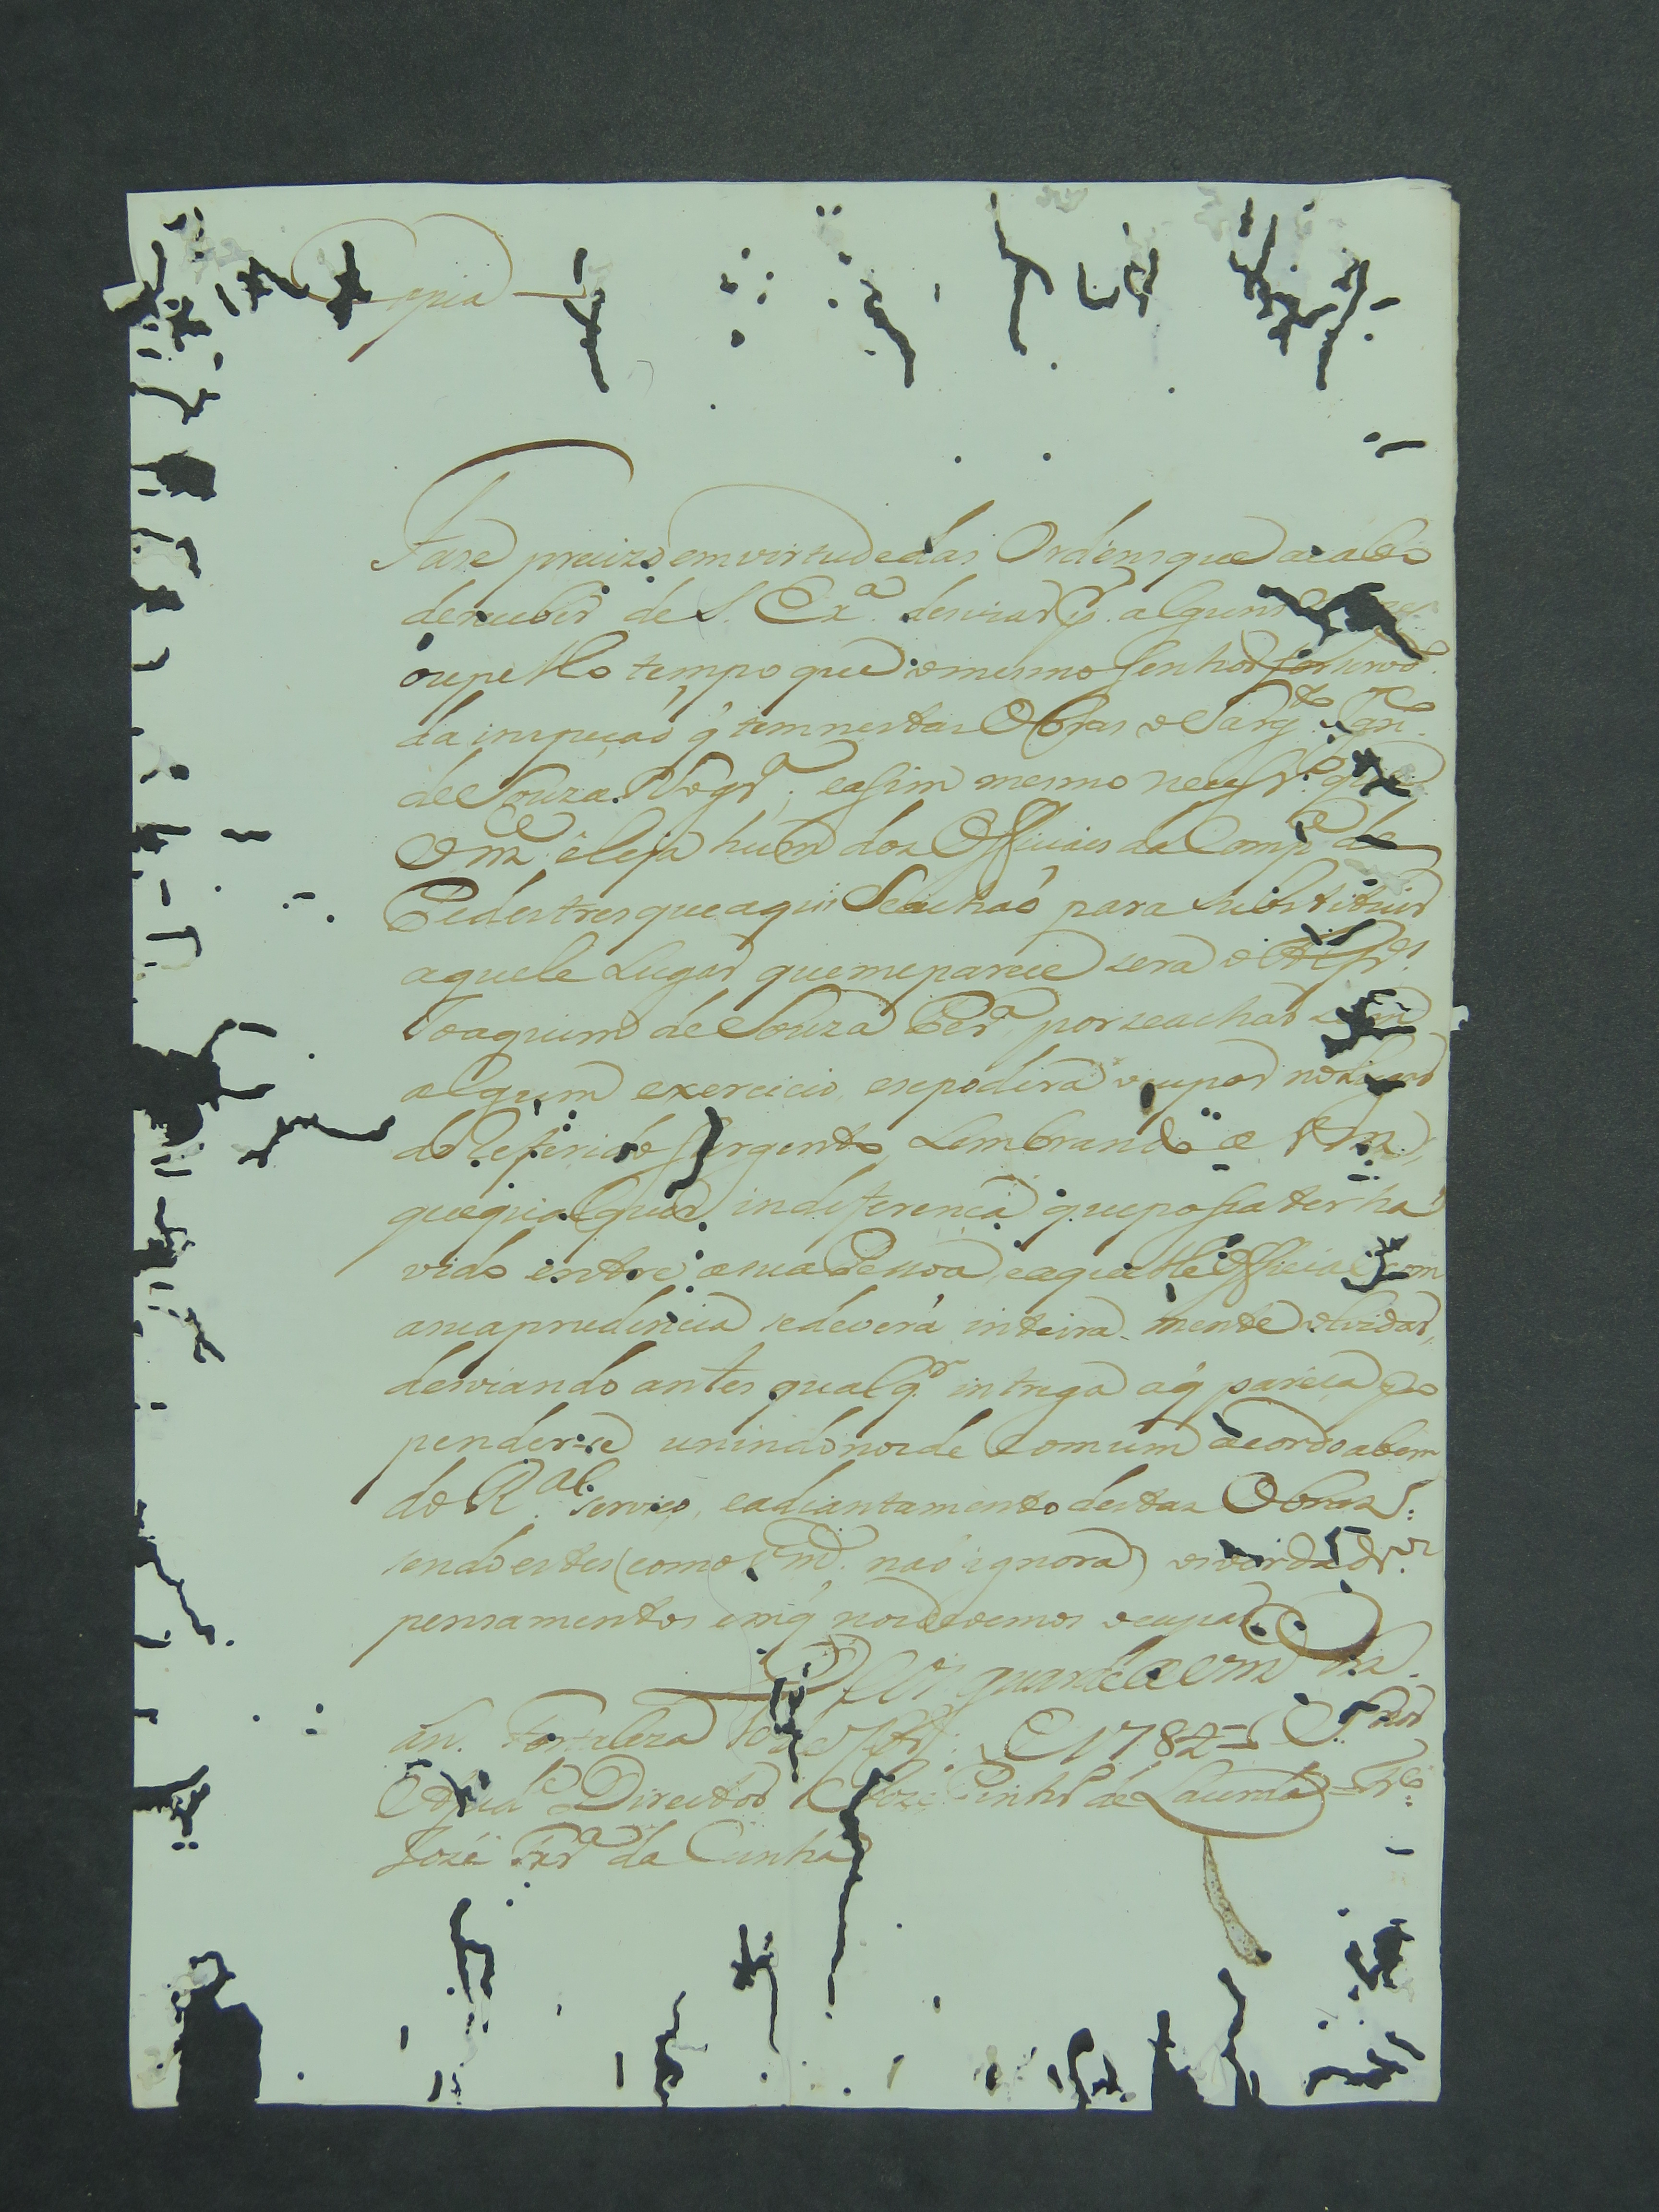 Copia
Fase precizo em virtude das Ordens que acabo
de receber de S. Ex.ª desviar p.r alguns
ou pello tempo que o mesmo Senhor for servido
da inspecaõ q' tem nestas Obras o Sarg.to
de Souza Nogr.ª; easim mesmo necessr.º que
Vm.ce eleja hum dos Officiaes da Comp.ª de
Pedestres que aqui Seachaõ para substituir
aquele Lugar que me parece sera o Alfr.es
Joaquim de Souza Per.ª por seachar sem
algum exercicio, esepoderá ocupar no lugar
do Referido Sargento, Lembrando a Vm.ce,
que qualquer indiferenca que possa ter ha
vido entre a sua Pessoa, e aquelle Official com
a sua prudencia se deverá inteira-mente olvidar,
desviando antes qualq.r intriga a q' pareca pro
pender-se unindonos de comum acordo abem
do R.al Serviço, eadiantamento destas Obras;
sendo estes (como Vm.ce naõ ignora) os verdadr.os
pensamentos em q' nos devemos ocupar.
Deos guarde a Vm.ce m.s
an.s Fortaleza de 1782 = S.nhor
Ajud.e Director Joze Pinhr.º de Lacerda =
José Frr.ª da Cunha